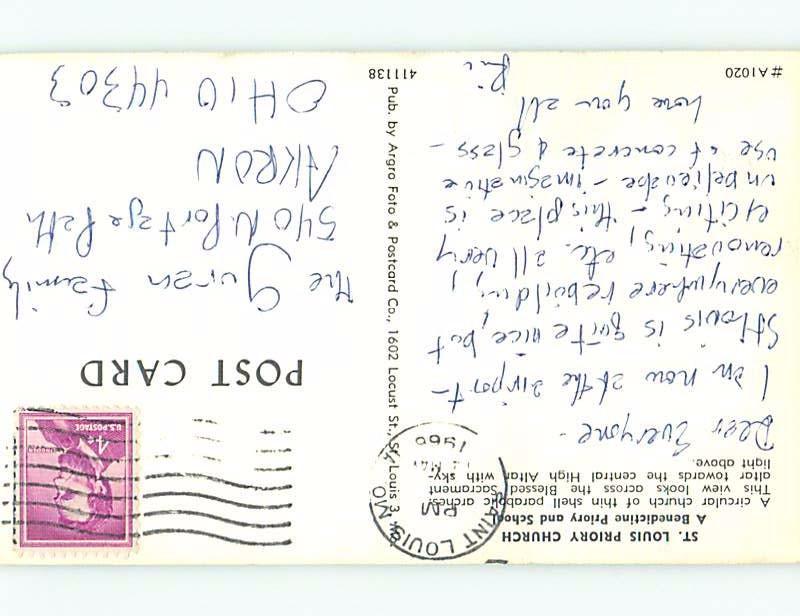 ST. LOUIS PRIORY CHURCH
A Benedictine Priory and School
A circular church of thin shell parabolic arches.
This view looks across the Blessed Sacrament
altar towards the central High Altar with sky-
light above.
Dear Everyone -
I am now at the airport -
St Louis is quite nice, but
everywhere rebuilding,
renovating, etc. all very
exciting - this place is
unbelievable - imaginative
use of concrete & glass -
love you all
#A1020
411138
Pub. by Argro Foto & Postcard Co., 1602 Locust St., St. Louis 3,
SAINT LOUIS, MO
PM
1966
POST CARD
U.S. POSTAGE
4¢
LINCOLN
the Guran Family
540 N Portage Path
AKRON
OHIO 44303